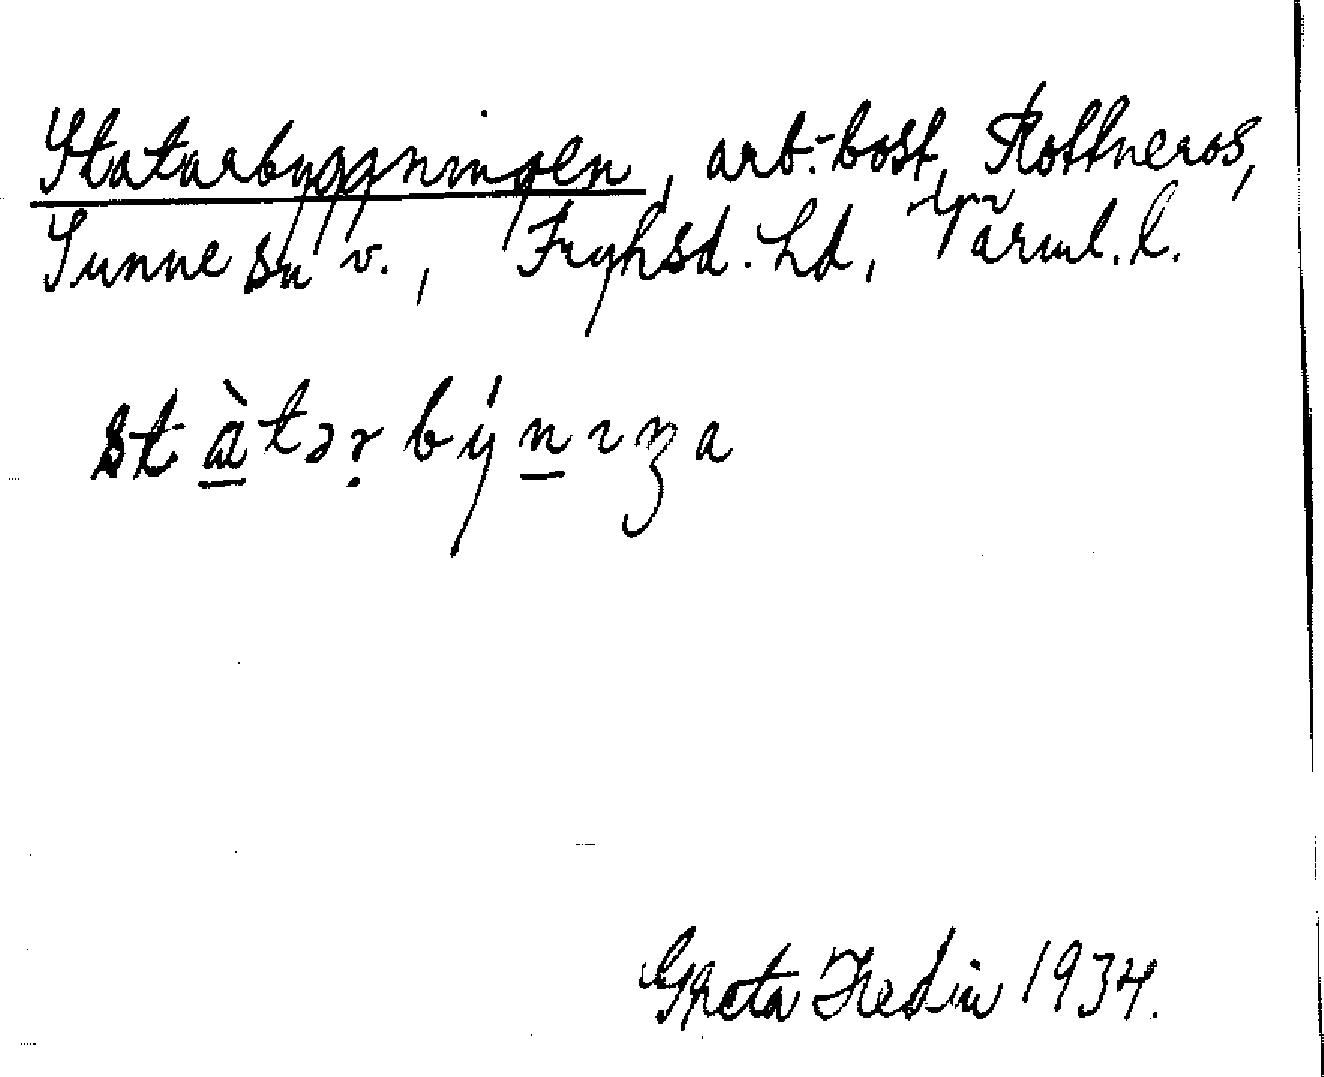 Statarbyggningen, arb.-bost, Rottneros,
Sunne sn v., Fryksd. hd, Värml. l.
st à t ə ṛ b ý n ı ŋ a
Greta Hedin 1934.